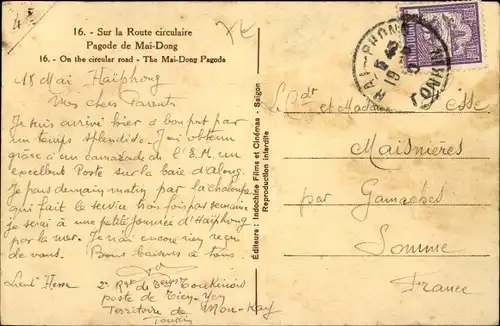 16. - Sur la Route circulaire
Pagode de Mai-Dong
16. - On the circular road - The Mai-Dong Pagoda
18 Mai Haïphong
Mes chers Parents
Je suis arrivé hier à bon port par
un temps splendide. J'ai obtenu
grâce à un camarade de l'E.M. un
excellent Poste sur la baie d'Along.
Je pars demain matin par la chaloupe
qui fait le service trois fois par semaine
je serai à une petite journée d'Haïphong
par la mer. Je n'ai encore rien reçu
de vous. Bons baisers à tous.
Lieut Hesse
2e Rgt de Tirrs Tonkinois
poste de Tien-Yen
Territoire de Mon-Kay
Tonkin
Editeurs : Indochine Films et Cinémas - Saigon
Reproduction interdite
INDOCHINE
HAI-PHONG
TONKIN
et Madame Hesse
Maisnières
par Gamaches
Somme
France